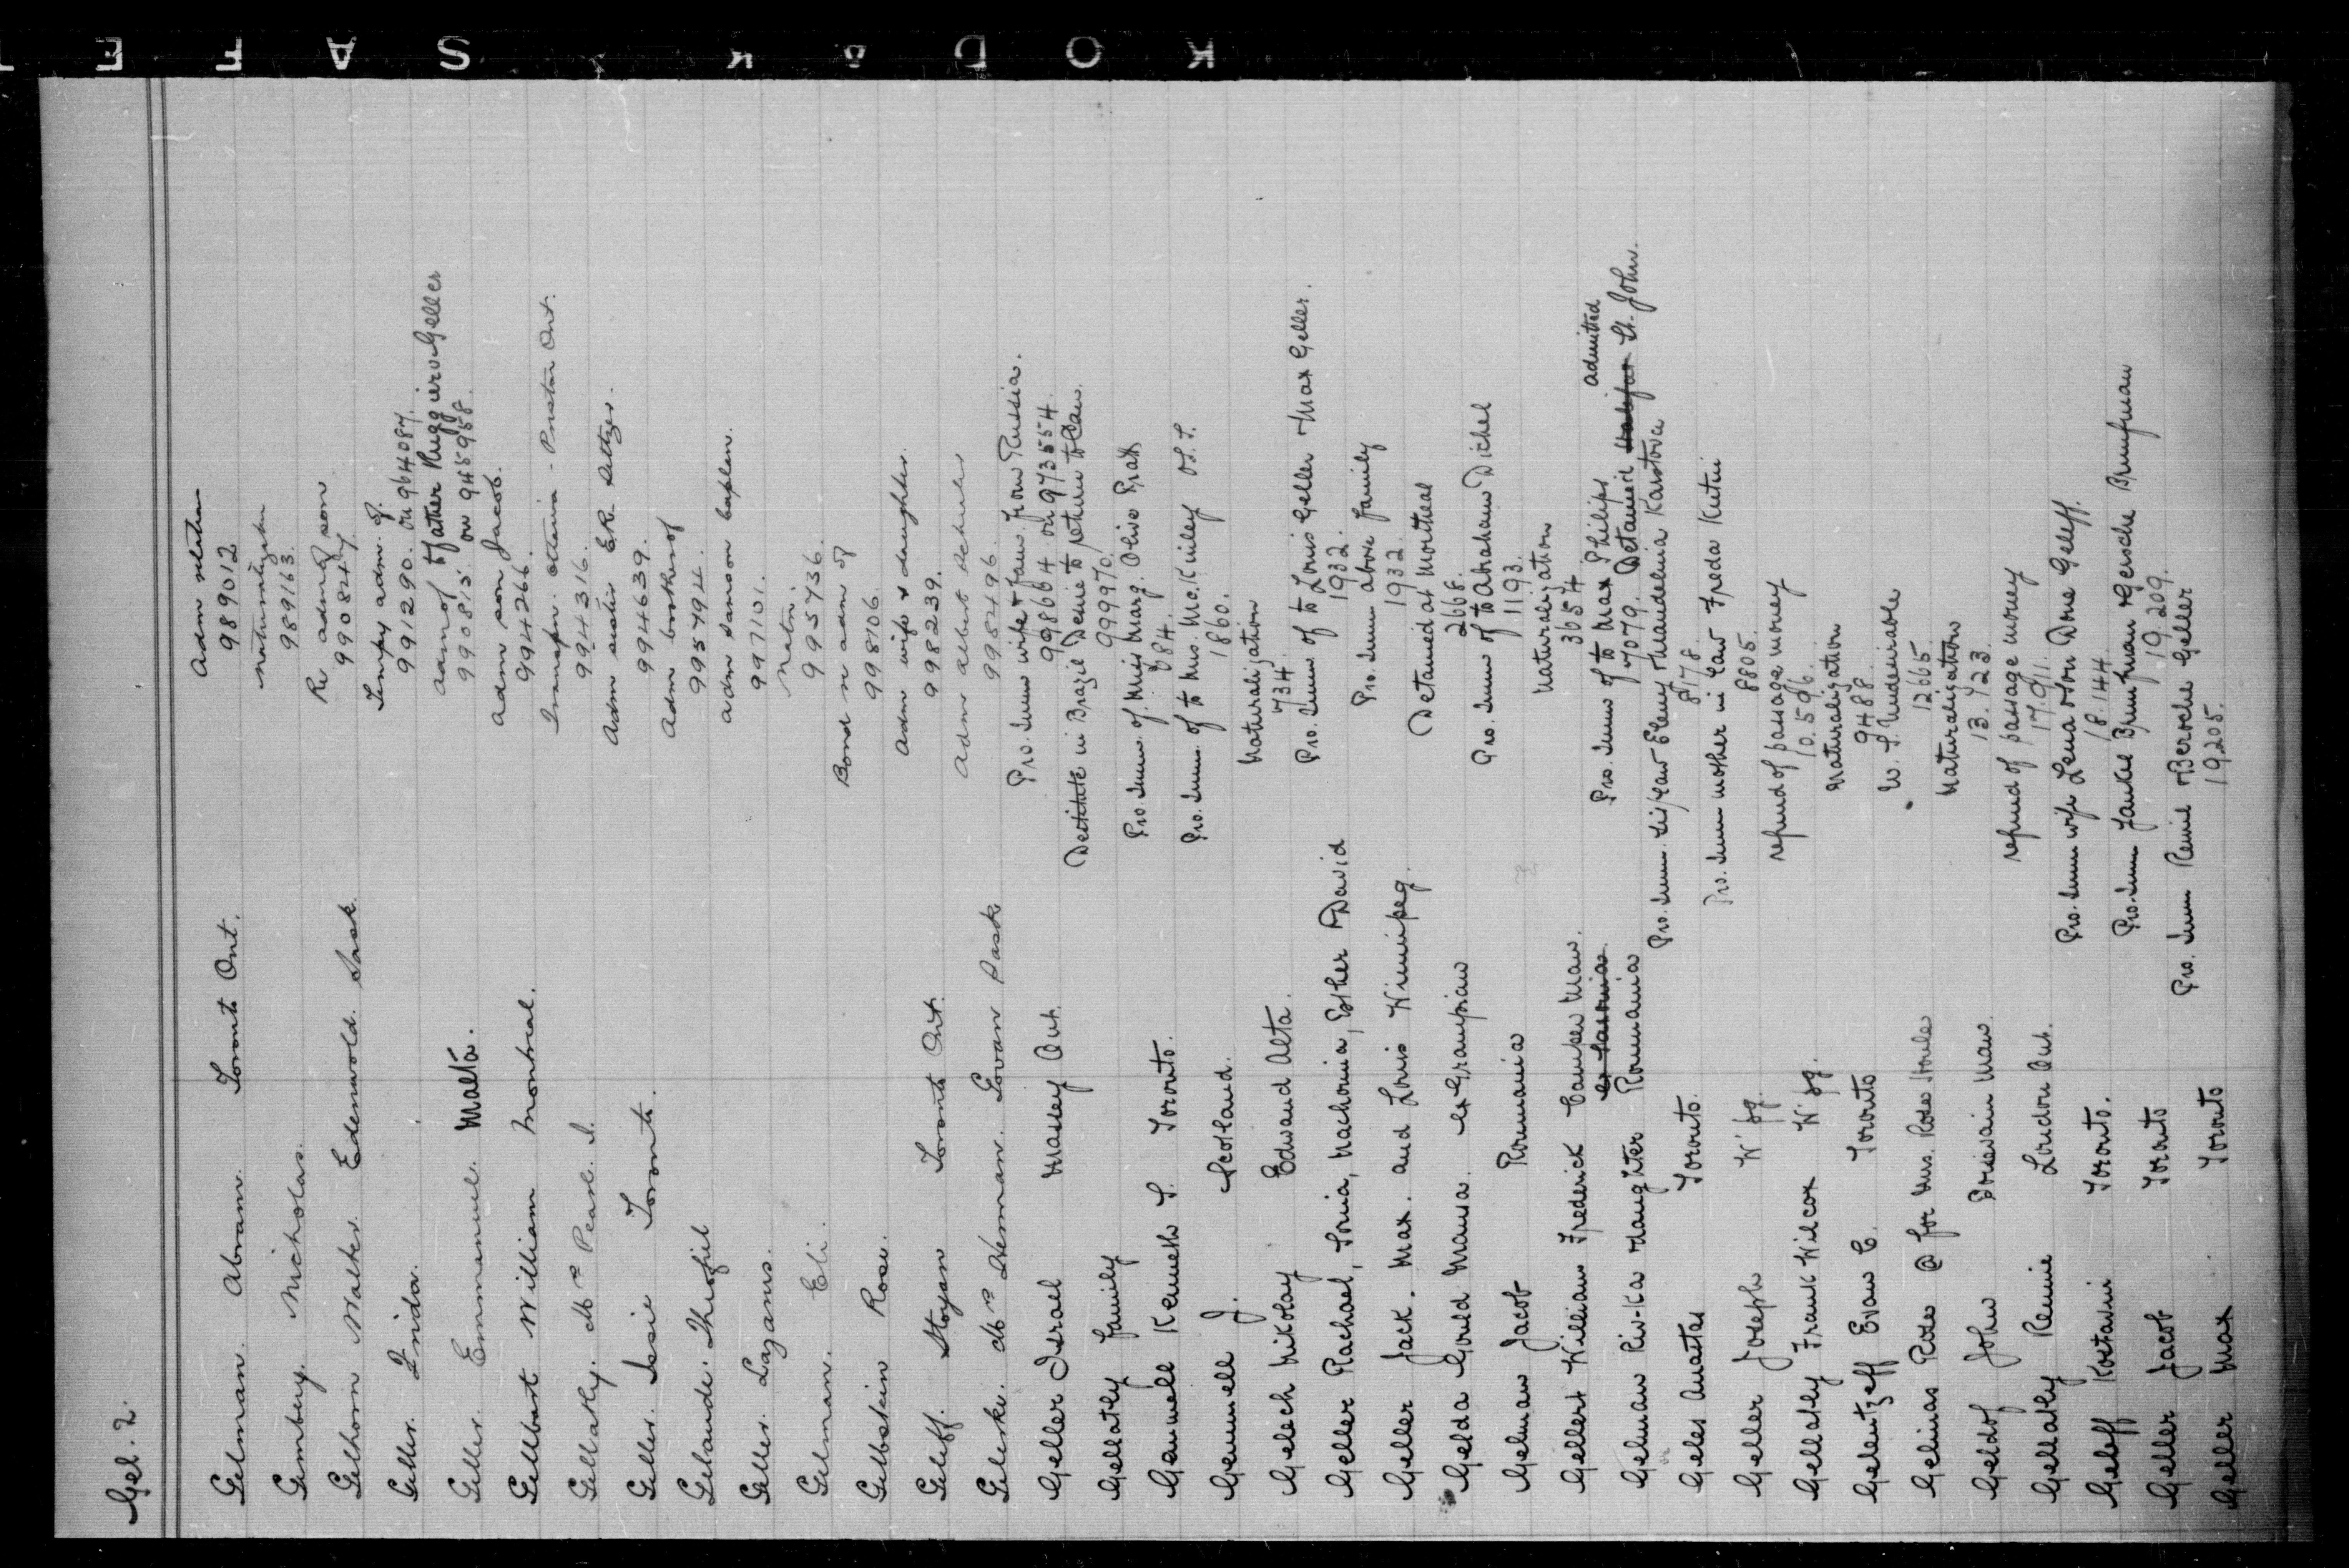 KODAK SAFETY
Gel. 2.
Gelman. Abram. Toronto Ont. Adm relation
989012
Gemberg. Nicholas. Naturalization
989163.
Gelhorn Walter. Edenwold. Sask. Re adm of son
990847
Geller. Tempy adm. of
991290. on 964087.
Geller. Emmanuel. Malta. adm of father Ruggiero Geller
990815. on 945958.
Gellbart William Montreal. Adm son Jacob.
994266.
Gellatly. Mrs Pearl. Ont.
994316.
Geller. Issie Toronto. Adm sister
994639.
Gelande. Theofiel Adm brother of
995794.
Geller. Lazarus. Adm
997101.
Gelman. Eli. Natn.
995736.
Gelbstein Rose. Bond re adm of
998106.
Geleff. Stoyan Toronto Ont. Adm wife & daughter.
998239.
Geleske. Mrs Herman. Govan Sask Adm Albert
998496.
Geller Israel Massey Ont. Pro. Imm wife & fam from Russia.
998664 on 973554.
Gellatly Family Destitute in Brazil Desire to return to Can.
999970.
Gemmell Kenneth S. Toronto. Pro. Imm. of Miss Marg. Olive
684.
Gemmell J. Scotland. Pro. Imm. of to Mrs. McKinley
1860.
Gelech Nikolay Edwand Alta. Naturalization
734.
Geller Rachael, Sonia, Machonia, Esther & David Pro. Imm of to Louis Geller & Max Geller.
1932.
Geller Jack. Max. and Louis Winnipeg. Pro. Imm above family
1932.
Gelda Gould Mansa. ex Grampian Detained at Montreal
2668.
Gelman Jacob Roumania Pro. Imm of to Abraham Dichel
1193.
Gellert William Frederick Camper Man. Naturalization
3654
Gelman Riv-Ka & daughter Roumania Pro. Imm of to Max Philips admitted
7079. Detained Halifax St. John.
Geles Anattas Toronto. Pro. Imm.
8178.
Geller Joseph W'pg. Pro. Imm mother in law Freda Kutin
8805.
Gellatly Frank Wilcox W'pg. refund of passage money
10.596.
Gelentzeff Evan C. Toronto Naturalization
9488.
Gelinas Rose @ for Mrs. Rose Houle W. S. Undesirable
12665.
Geldof John Naturalization
13.723.
Gellatly Rennie London Ont. refund of passage money
17.911.
Geleff Kostadin Toronto. Pro. Imm wife Lena & son Done Geleff.
18.144.
Geller Jacob Toronto Pro. Imm
19.209.
Geller Max Toronto Pro. Imm & Berouche Geller
19205.